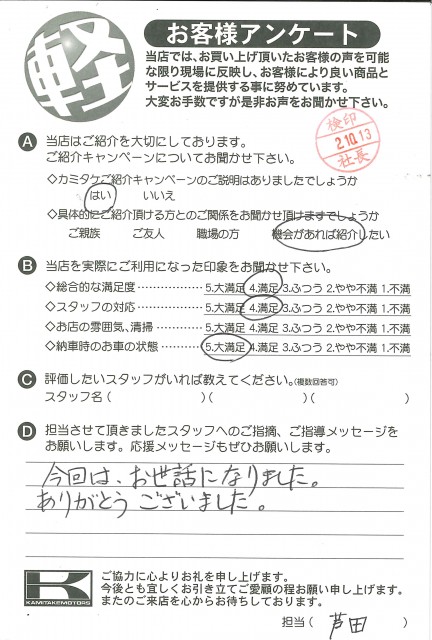 軽
お客様アンケート
当店では、お買い上げ頂いたお客様の声を可能
な限り現場に反映し、お客様により良い商品と
サービスを提供する事に努めています。
大変お手数ですが是非お声をお聞かせ下さい。
検印
2.10.13
社長
A 当店はご紹介を大切にしております。
ご紹介キャンペーンについてお聞かせ下さい。
◇カミタケご紹介キャンペーンのご説明はありましたでしょうか
はい いいえ
◇具体的にご紹介頂ける方とのご関係をお聞かせ頂けますでしょうか
ご親族 ご友人 職場の方 機会があれば紹介したい
B 当店を実際にご利用になった印象をお聞かせ下さい。
◇総合的な満足度……………… 5.大満足 4.満足 3.ふつう 2.やや不満 1.不満
◇スタッフの対応……………… 5.大満足 4.満足 3.ふつう 2.やや不満 1.不満
◇お店の雰囲気、清掃………… 5.大満足 4.満足 3.ふつう 2.やや不満 1.不満
◇納車時のお車の状態………… 5.大満足 4.満足 3.ふつう 2.やや不満 1.不満
C 評価したいスタッフがいれば教えてください。(複数回答可)
スタッフ名( )( )( )
D 担当させて頂きましたスタッフへのご指摘、ご指導メッセージを
お願いします。応援メッセージもぜひお願いします。
今回は、お世話になりました。
ありがとうございました。
K
KAMITAKE MOTORS
ご協力に心よりお礼を申し上げます。
今後とも宜しくお引き立てご愛顧の程お願い申し上げます。
またのご来店を心からお待ちしております。
担当( 芦田 )